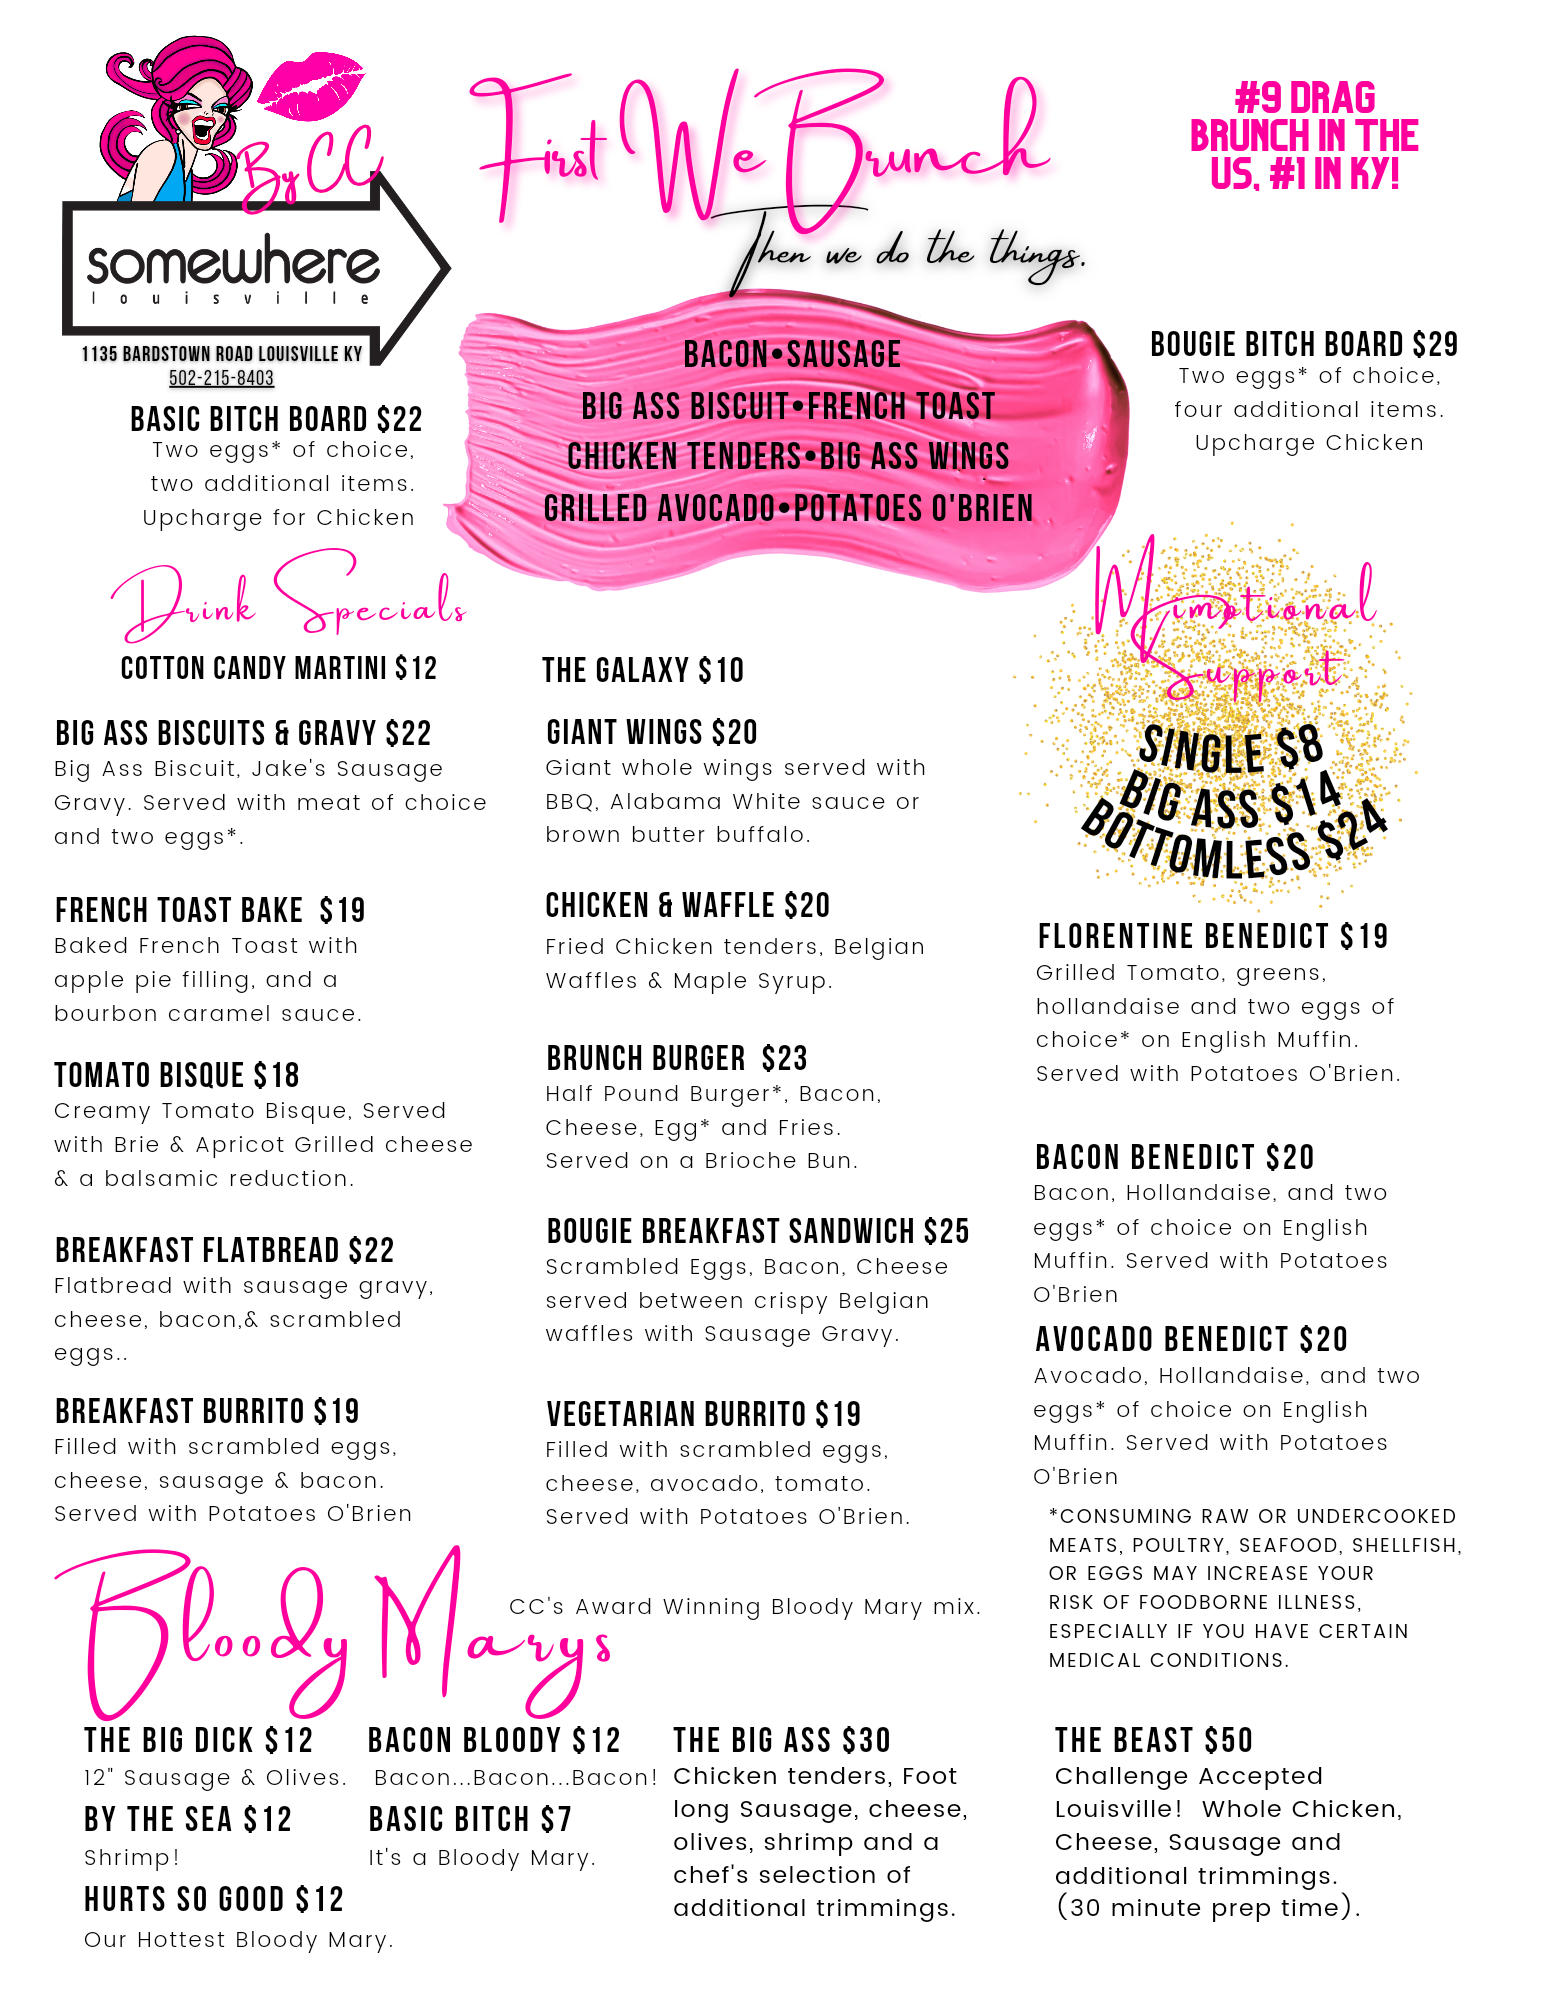 By CC
somewhere
louisville
1135 BARDSTOWN ROAD LOUISVILLE KY
502-215-8403
First We Brunch
Then we do the things.
#9 DRAG
BRUNCH IN THE
US, #1 IN KY!
BASIC BITCH BOARD $22
Two eggs* of choice,
two additional items.
Upcharge for Chicken
BACON•SAUSAGE
BIG ASS BISCUIT•FRENCH TOAST
CHICKEN TENDERS•BIG ASS WINGS
GRILLED AVOCADO•POTATOES O'BRIEN
BOUGIE BITCH BOARD $29
Two eggs* of choice,
four additional items.
Upcharge Chicken
Drink Specials
COTTON CANDY MARTINI $12
THE GALAXY $10
Mimotional
Support
SINGLE $8
BIG ASS $14
BOTTOMLESS $24
BIG ASS BISCUITS & GRAVY $22
Big Ass Biscuit, Jake's Sausage
Gravy. Served with meat of choice
and two eggs*.
FRENCH TOAST BAKE $19
Baked French Toast with
apple pie filling, and a
bourbon caramel sauce.
TOMATO BISQUE $18
Creamy Tomato Bisque, Served
with Brie & Apricot Grilled cheese
& a balsamic reduction.
BREAKFAST FLATBREAD $22
Flatbread with sausage gravy,
cheese, bacon,& scrambled
eggs..
BREAKFAST BURRITO $19
Filled with scrambled eggs,
cheese, sausage & bacon.
Served with Potatoes O'Brien
GIANT WINGS $20
Giant whole wings served with
BBQ, Alabama White sauce or
brown butter buffalo.
CHICKEN & WAFFLE $20
Fried Chicken tenders, Belgian
Waffles & Maple Syrup.
BRUNCH BURGER $23
Half Pound Burger*, Bacon,
Cheese, Egg* and Fries.
Served on a Brioche Bun.
BOUGIE BREAKFAST SANDWICH $25
Scrambled Eggs, Bacon, Cheese
served between crispy Belgian
waffles with Sausage Gravy.
VEGETARIAN BURRITO $19
Filled with scrambled eggs,
cheese, avocado, tomato.
Served with Potatoes O'Brien.
FLORENTINE BENEDICT $19
Grilled Tomato, greens,
hollandaise and two eggs of
choice* on English Muffin.
Served with Potatoes O'Brien.
BACON BENEDICT $20
Bacon, Hollandaise, and two
eggs* of choice on English
Muffin. Served with Potatoes
O'Brien
AVOCADO BENEDICT $20
Avocado, Hollandaise, and two
eggs* of choice on English
Muffin. Served with Potatoes
O'Brien
*CONSUMING RAW OR UNDERCOOKED
MEATS, POULTRY, SEAFOOD, SHELLFISH,
OR EGGS MAY INCREASE YOUR
RISK OF FOODBORNE ILLNESS,
ESPECIALLY IF YOU HAVE CERTAIN
MEDICAL CONDITIONS.
Bloody Marys
CC's Award Winning Bloody Mary mix.
THE BIG DICK $12
12" Sausage & Olives.
BY THE SEA $12
Shrimp!
HURTS SO GOOD $12
Our Hottest Bloody Mary.
BACON BLOODY $12
Bacon...Bacon...Bacon!
BASIC BITCH $7
It's a Bloody Mary.
THE BIG ASS $30
Chicken tenders, Foot
long Sausage, cheese,
olives, shrimp and a
chef's selection of
additional trimmings.
THE BEAST $50
Challenge Accepted
Louisville! Whole Chicken,
Cheese, Sausage and
additional trimmings.
(30 minute prep time).